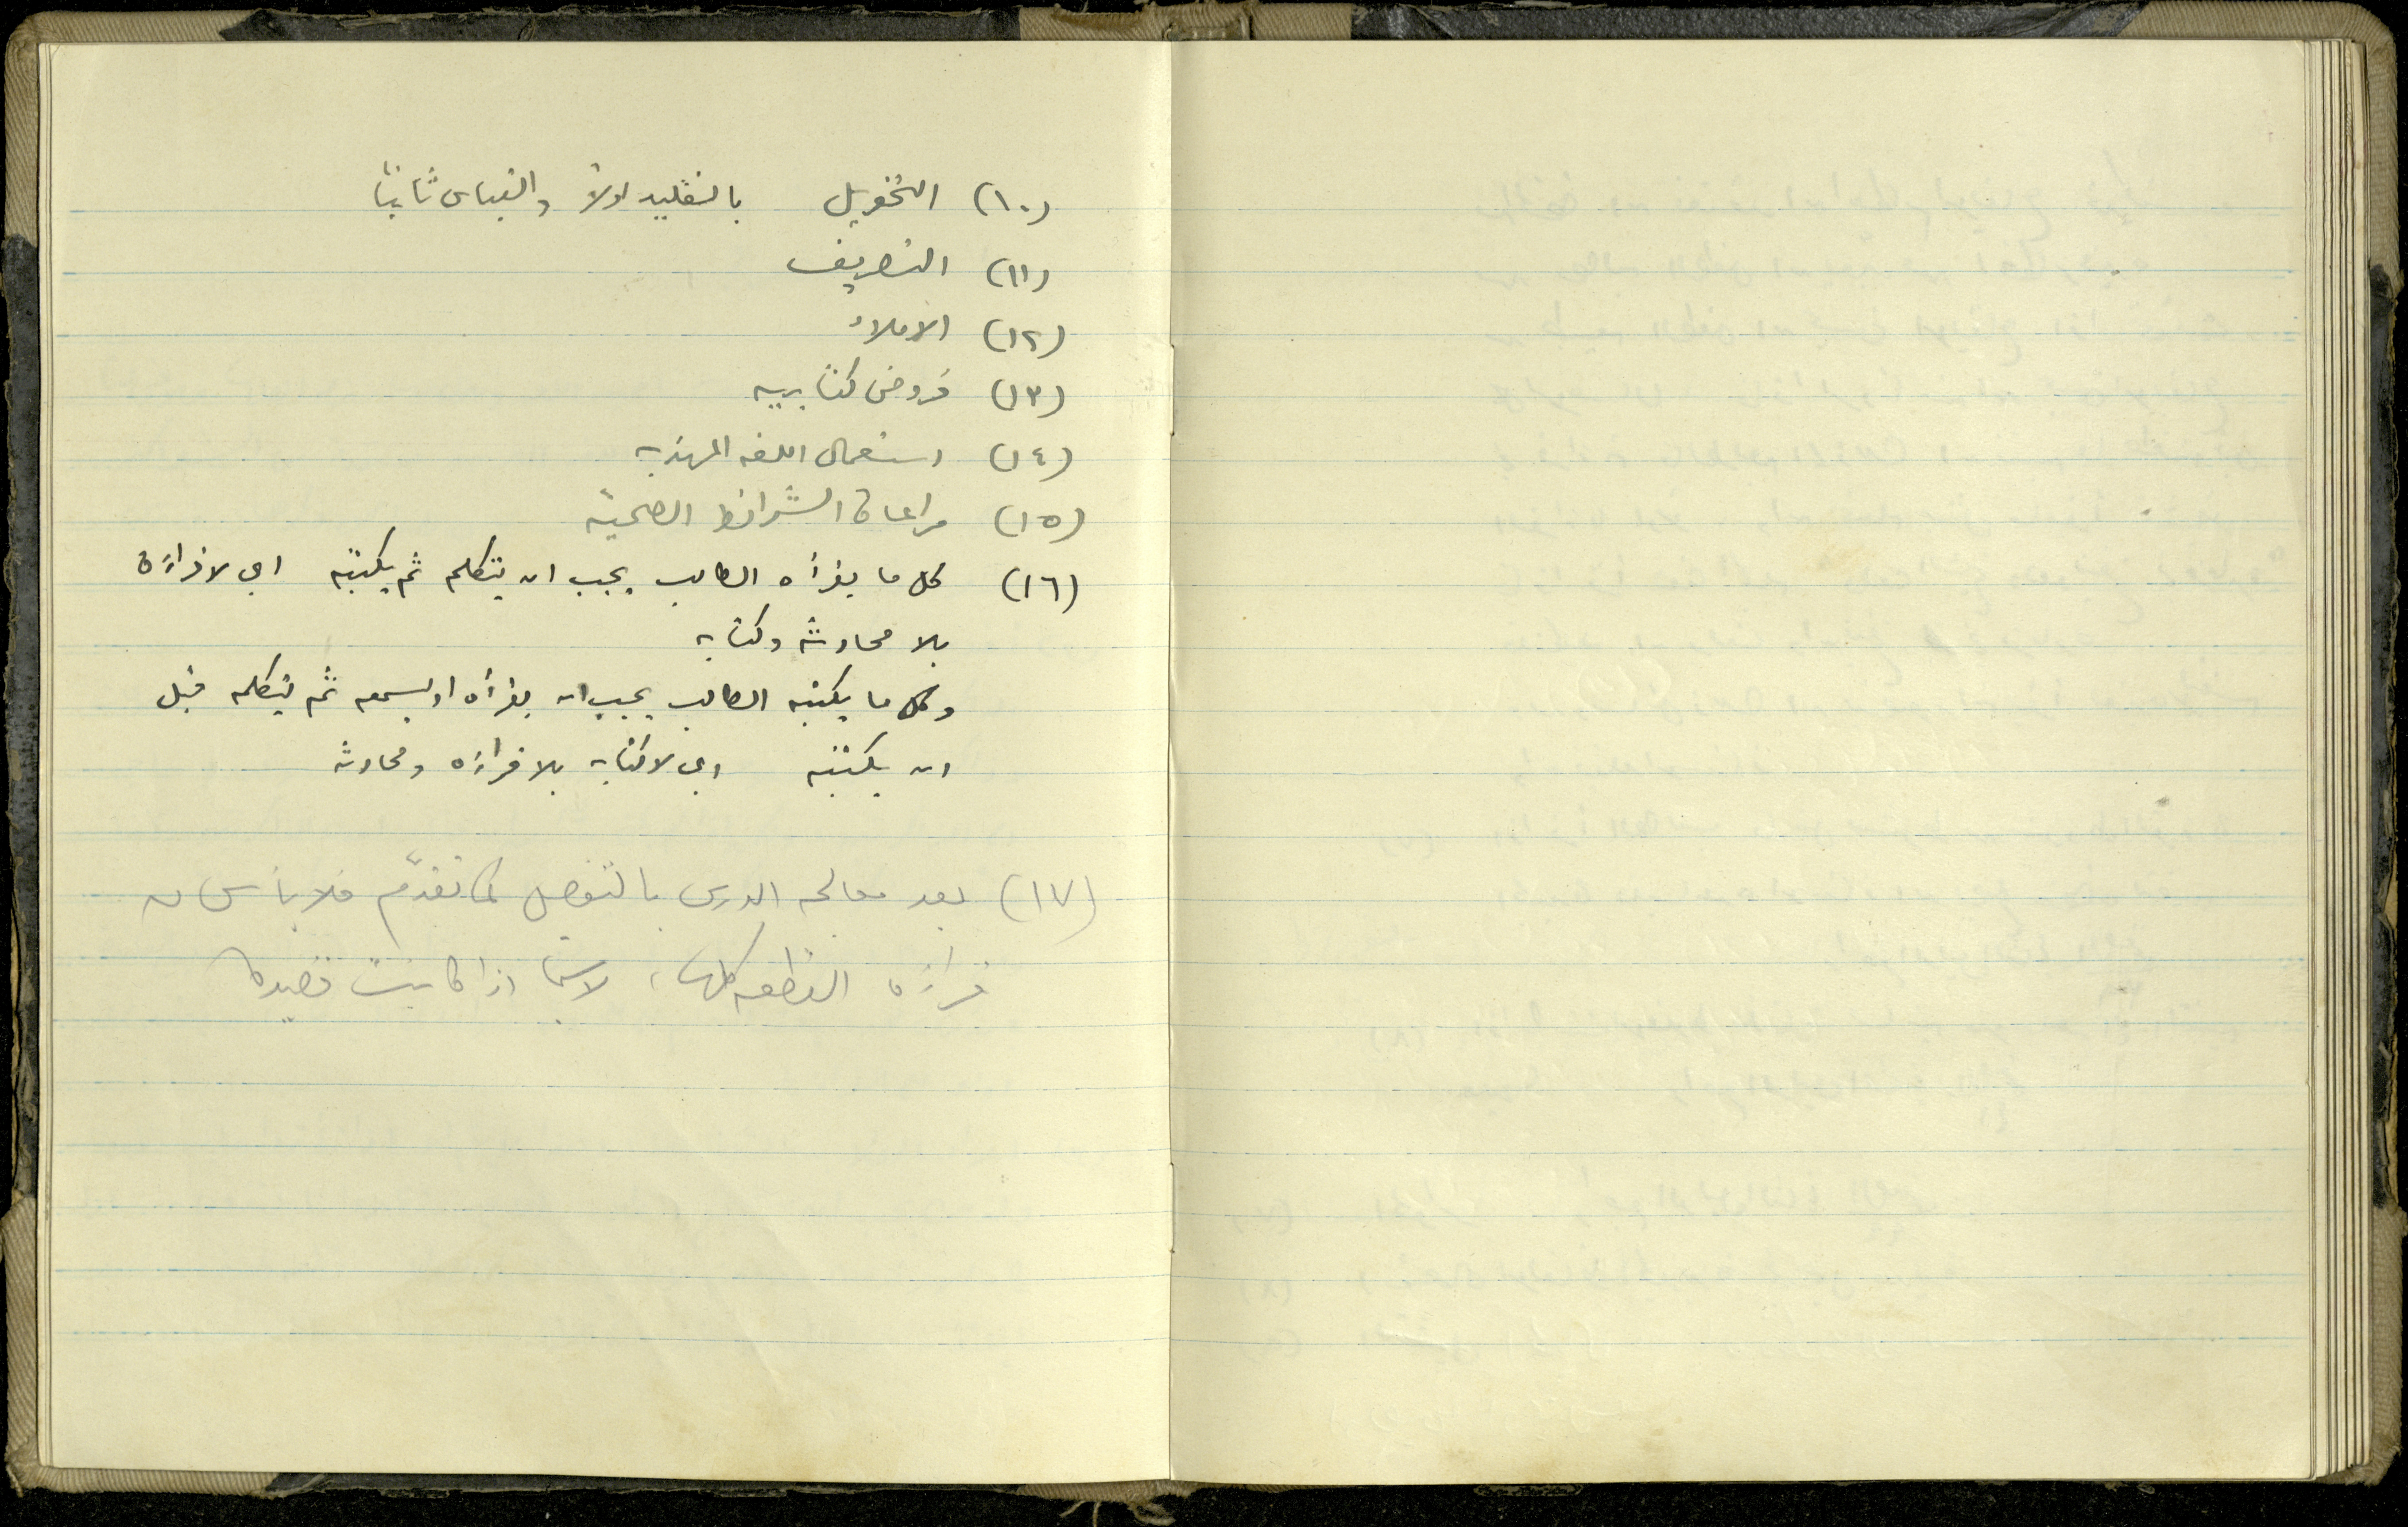 (١٠) التحويل بالتقليد اولاً والقياس ثانياً
(١١) التصريف
(١٢) الاملاء
(١٣) فروض كتابيه
(١٤) استعمال اللغه المهذبه
(١٥) مراعاة الشرائط الصحيّة
(١٦) كل ما يقرأه الطالب يجب ان يتكلم ثم يكتبه اي لا قراءة
بلا محادثه وكتابه
وكل ما يكتبه الطالب يجب ان يقرأه او يسمعه ثم يتكلمه قبل
ان يكتبه اي لا كتابه بلا قراءه ومحادثه
(١٧) بعد معالجه الدرس بالتفصيل كما تقدّم فلا بأس من
قراءة القطعه كلها، لاسيما اذا كانت قصيدة